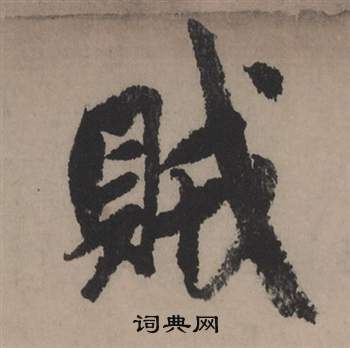 賊
词典网